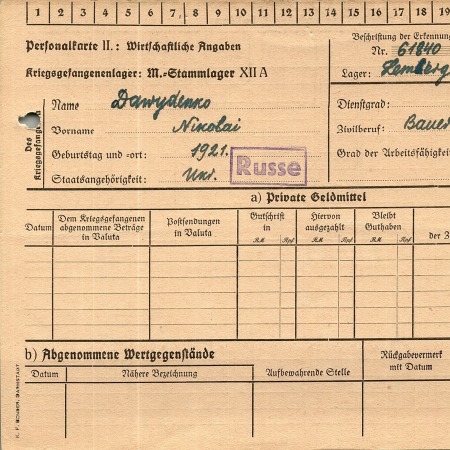 1 2 3 4 5 6 7 8 9 10 11 12 13 14 15 16 17 18 19
Personalkarte II.: Wirtschaftliche Angaben
Beschriftung der Erkennun
Nr. 61840
Kriegsgefangenenlager: M.-Stammlager XII A
Lager: Hemberg
Des Kriegsgefangenen
Name Dawydenko
Dienstgrad:
Vorname Nikolai
Zivilberuf: Bauer
Geburtstag und -ort: 1921.
Grad der Arbeitsfähigkeit
Staatsangehörigkeit: Ukr.
Russe
a) Private Geldmittel
Datum
Dem Kriegsgefangenen abgenommene Beträge in Valuta
Postsendungen in Valuta
Gutschrift in
RM Rpf
Hiervon ausgezahlt
RM Rpf
Bleibt Guthaben
RM Rpf
der 3
b) Abgenommene Wertgegenstände
Rückgabevermerk mit Datum
Datum Nähere Bezeichnung Aufbewahrende Stelle